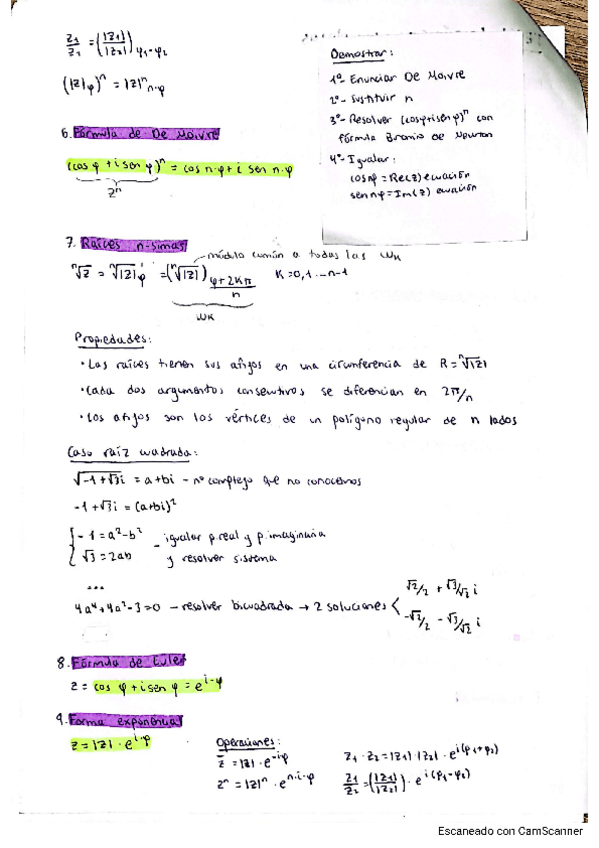 z₁/z₂ = (|z₁|/|z₂|)φ₁-φ₂
(|z|φ)ⁿ = |z|ⁿ n·φ
Demostrar:
1º- Enunciar De Moivre
2º- Sustituir n
3º- Resolver (cosφ+isenφ)ⁿ con
fórmula Binomio de Newton
4º- Igualar:
cosnφ = Re(z) ecuación
sennφ = Im(z) ecuación
6. Fórmula de De Moivre
(cos φ + i sen φ)ⁿ = cos n·φ + i sen n·φ
zⁿ
7. Raíces n-simas
módulo común a todas las wk
ⁿ√z = ⁿ√|z|φ = (ⁿ√|z|) φ+2kπ/n K=0,1...n-1
wk
Propiedades:
· Las raíces tienen sus afijos en una circunferencia de R = ⁿ√|z|
· Cada dos argumentos consecutivos se diferencian en 2π/n
· Los afijos son los vértices de un polígono regular de n lados
Caso raíz cuadrada:
√-1+√3i = a+bi - nº complejo que no conocemos
-1+√3i = (a+bi)²
{ -1 = a²-b²
√3 = 2ab
- igualar p.real y p.imaginaria
y resolver sistema
...
4a⁴+4a²-3=0 - resolver bicuadrada → 2 soluciones <
√2/2 + √3/√2 i
-√2/2 - √3/√2 i
8. Fórmula de Euler
z = cos φ + i sen φ = e^i·φ
9. Forma exponencial
z = |z| · e^i·φ
Operaciones:
z̅ = |z| · e^-i·φ
zⁿ = |z|ⁿ · e^n·i·φ
z₁ · z₂ = |z₁| · |z₂| · e^i(φ₁+φ₂)
z₁/z₂ = (|z₁|/|z₂|) · e^i(φ₁-φ₂)
Escaneado con CamScanner